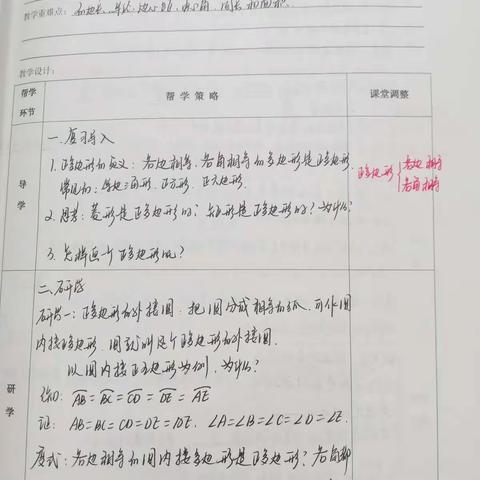 教学重难点：和边长、半径、边心距、中心角、周长和面积.
教学设计：
帮学环节
帮学策略
课堂调整
导学
一.复习导入
1.正多边形的定义：各边相等、各角相等的多边形是正多边形.
常见的：等边三角形、正方形、正六边形.
2.思考：菱形是正多边形吗？矩形是正多边形吗？为什么？
3.怎样画个正多边形呢？
正多边形{各边相等
各角相等
研学
二.研学
研学一：正多边形和外接圆：把圆分成相等的弧，可作圆
内接正多边形.圆就叫这个正多边形的外接圆.
以圆内接正五边形为例，为什么？
已知：AB=BC=CD=DE=AE
证：AB=BC=CD=DE=AE. ∠A=∠B=∠C=∠D=∠E.
变式：各边相等的圆内接多边形是正多边形？各角都